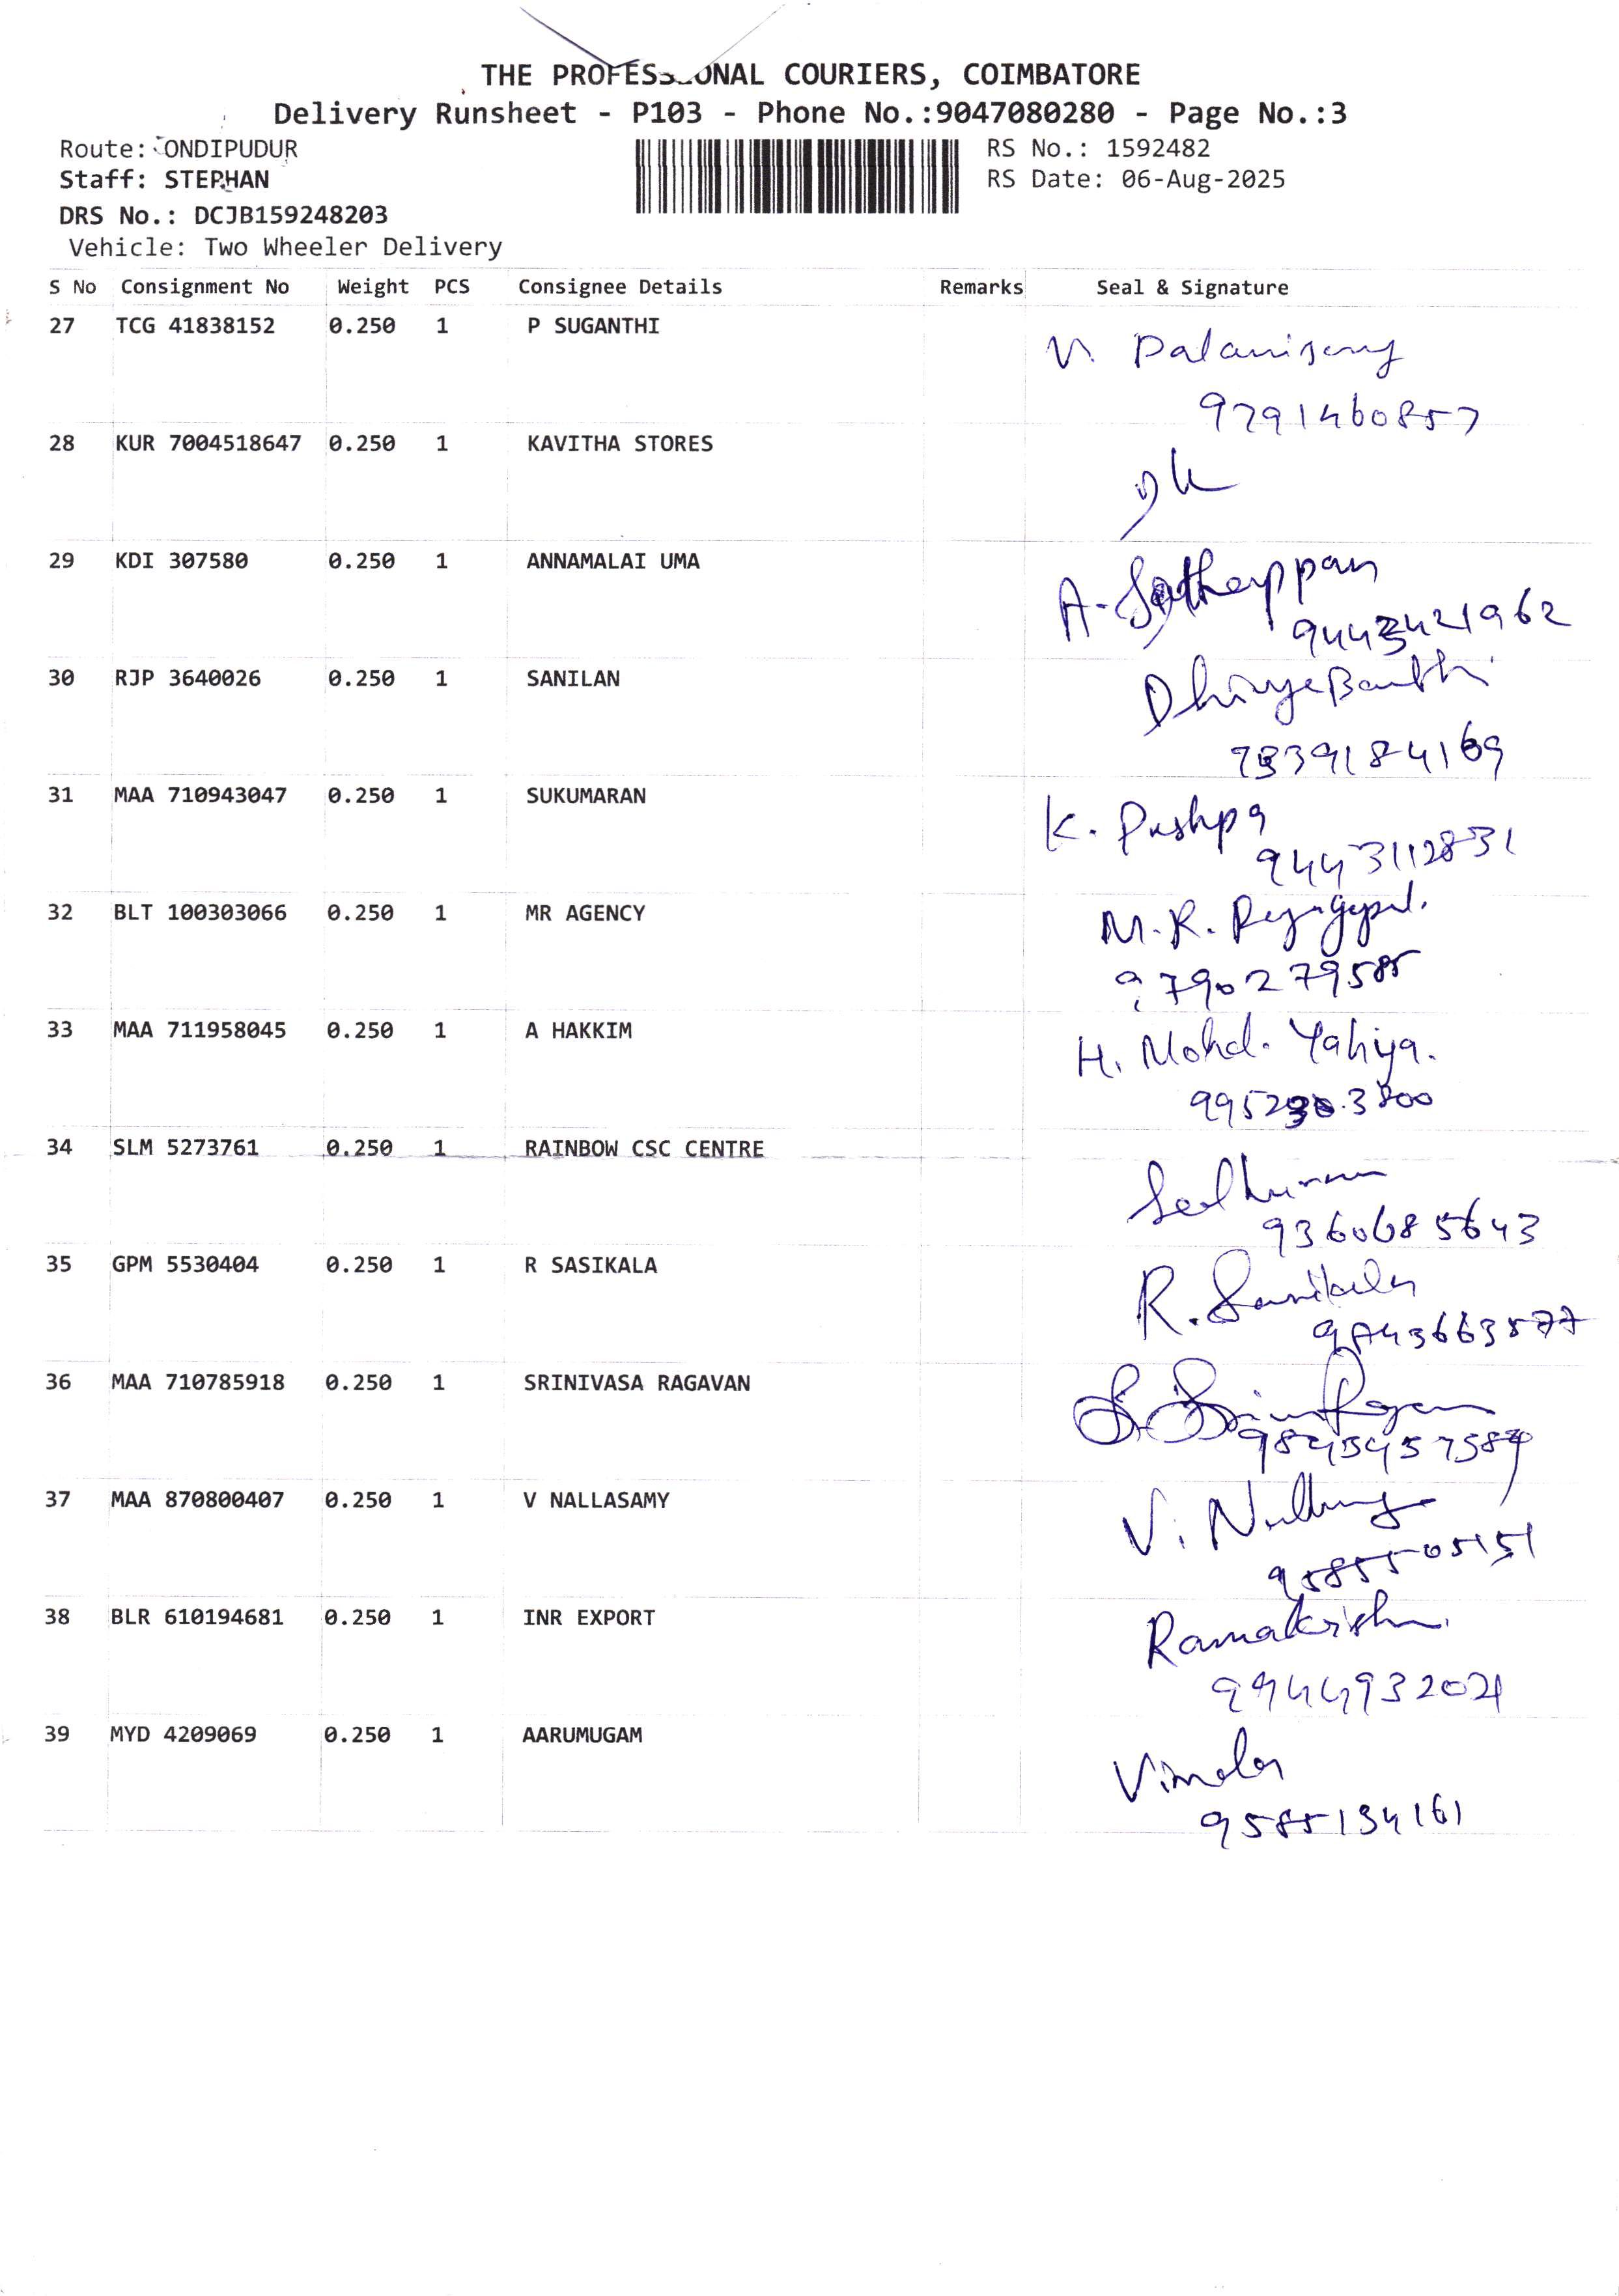 THE PROFESSIONAL COURIERS, COIMBATORE
Delivery Runsheet - P103 - Phone No.:9047080280 - Page No.:3
Route: ONDIPUDUR
RS No.: 1592482
Staff: STEPHAN
RS Date: 06-Aug-2025
DRS No.: DCJB159248203
Vehicle: Two Wheeler Delivery
S No Consignment No Weight PCS Consignee Details Remarks Seal & Signature
27 TCG 41838152 0.250 1 P SUGANTHI
9791460857
28 KUR 7004518647 0.250 1 KAVITHA STORES
29 KDI 307580 0.250 1 ANNAMALAI UMA
30 RJP 3640026 0.250 1 SANILAN
31 MAA 710943047 0.250 1 SUKUMARAN
K. Pushpa
9443112831
32 BLT 100303066 0.250 1 MR AGENCY
M.R. Rajagopal.
9790279585
33 MAA 711958045 0.250 1 A HAKKIM
H. Mohd. Yahiya.
34 SLM 5273761 0.250 1 RAINBOW CSC CENTRE
9360685643
35 GPM 5530404 0.250 1 R SASIKALA
R. Sasikala
36 MAA 710785918 0.250 1 SRINIVASA RAGAVAN
37 MAA 870800407 0.250 1 V NALLASAMY
9585505151
38 BLR 610194681 0.250 1 INR EXPORT
Ramakrishn
39 MYD 4209069 0.250 1 AARUMUGAM
Vimala
9585134161